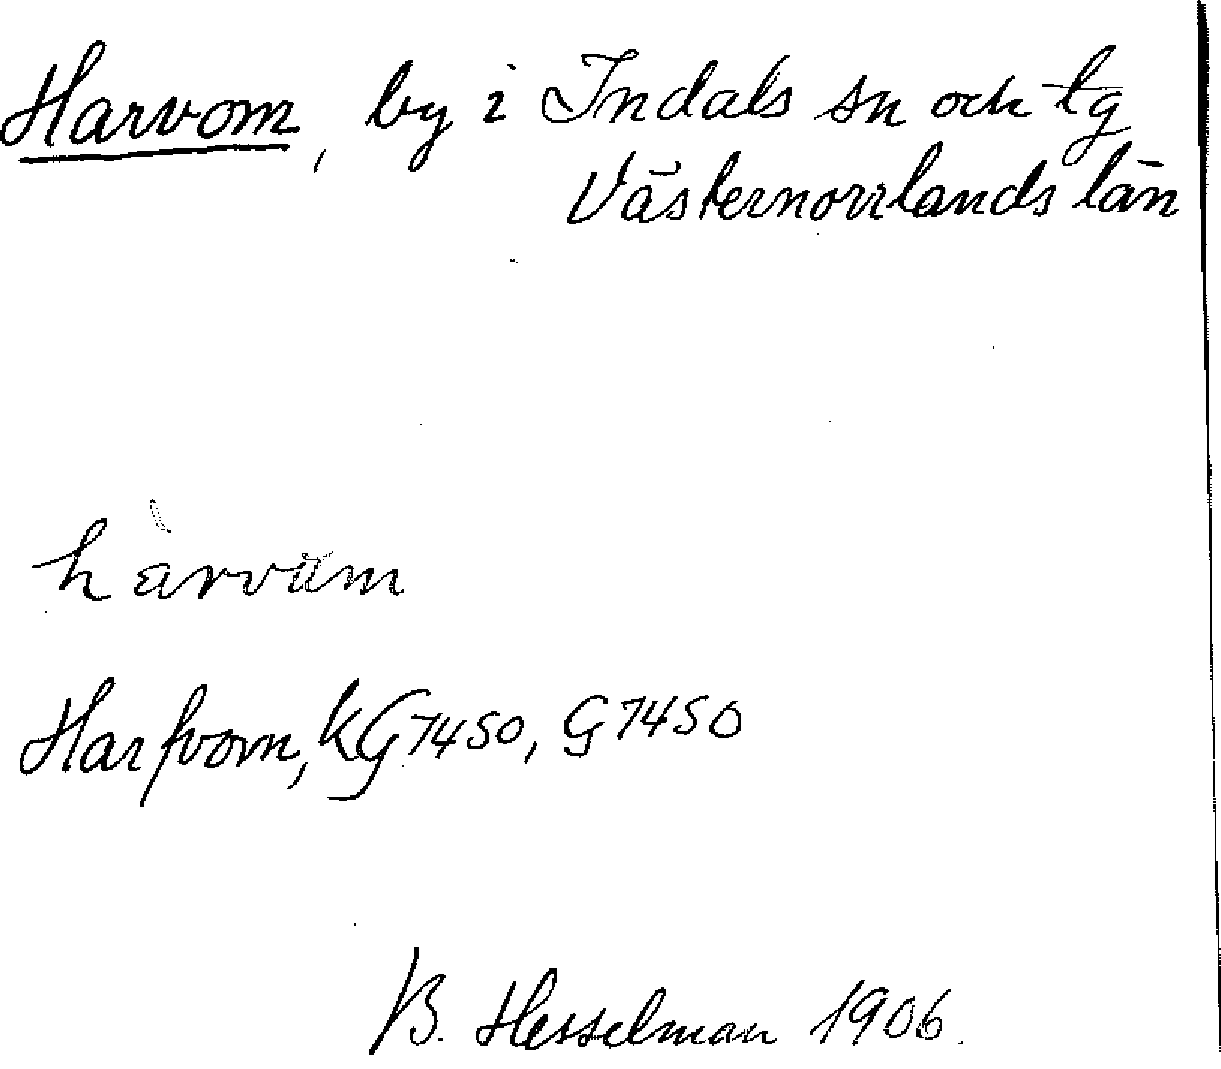 Harvom, by i Indals sn och tg
Västernorrlands län
hàrvüm
Harfvom, KG 7450, G 7450
B. Hesselman 1906.